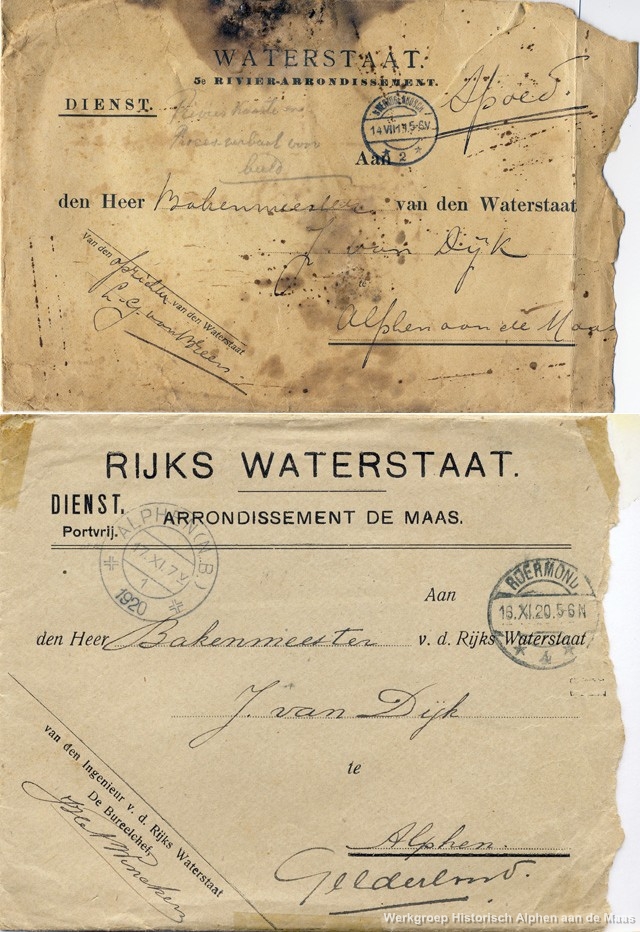 WATERSTAAT.
5e RIVIER-ARRONDISSEMENT.
DIENST.
Spoed.
14 VII 5-6V
2
Aan
den Heer Bakenmeester van den Waterstaat
J. van Dijk
te
Alphen aan de Maas
Van den opzichter van den Waterstaat
RIJKS WATERSTAAT.
DIENST.
Portvrij.
ARRONDISSEMENT DE MAAS.
ALPHEN (N.B.)
17.XI.7V
1
1920
ROERMOND
16.XI.20.5-6N
4
Aan
den Heer Bakenmeester v. d. Rijks Waterstaat
J. van Dijk
te
Alphen.
Gelderland.
van den Ingenieur v. d. Rijks Waterstaat
De Bureelchef,
Werkgroep Historisch Alphen aan de Maas